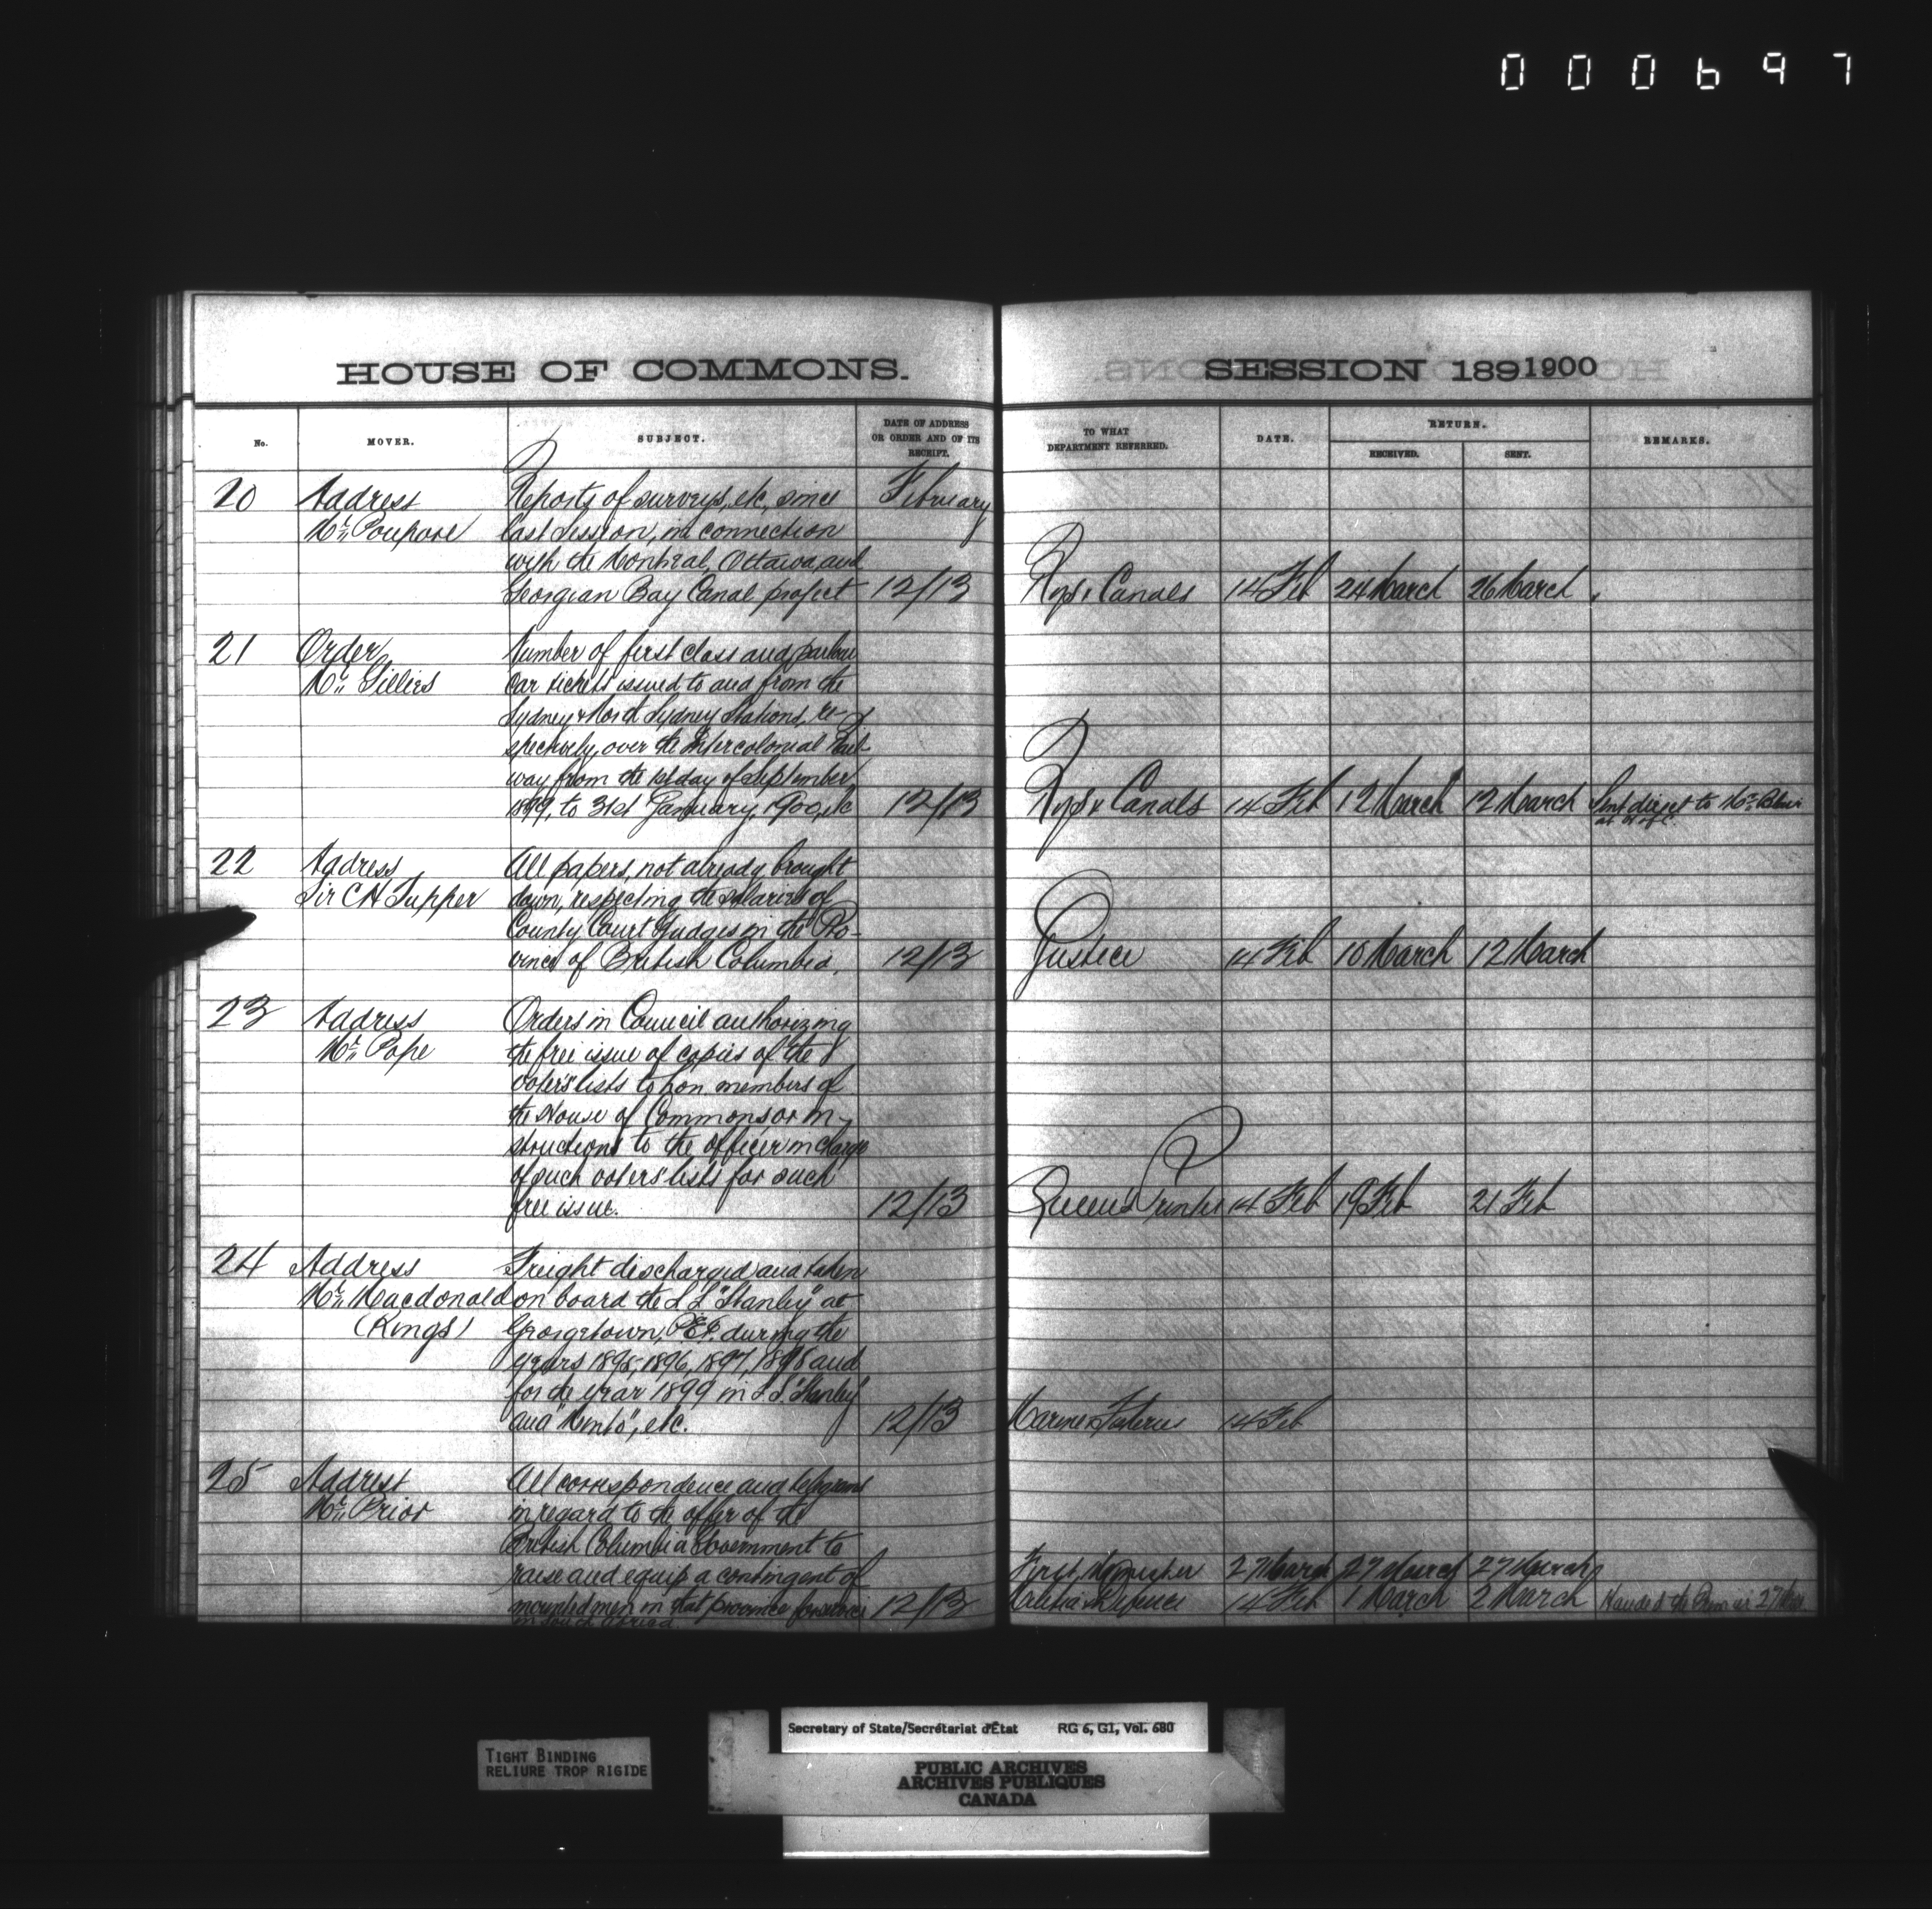 000697
HOUSE OF COMMONS.
SESSION 1891900
No.
MOVER.
SUBJECT.
DATE OF ADDRESS
OR ORDER AND OF ITS
RECEIPT.
TO WHAT
DEPARTMENT REFERRED.
DATE.
RETURN.
RECEIVED.
SENT.
REMARKS.
20 Address Reports of surveys, etc, since February
Mr. Poupore last session, in connection
with the Montreal, Ottawa and
Georgian Bay Canal project 12/13 Rys & Canals 14 Feb 24 March 26 March
21 Order Number of first class and parlour
Mr. Gillies car tickets issued to and from the
Sydney & North Sydney Stations, re-
spectively, over the Intercolonial Rail-
way from the 1st day of September
1899, to 31st January, 1900, etc 12/13 Rys & Canals 14 Feb 12 March 12 March Sent direct to Mr. Blair
at H of C.
22 Address All papers, not already brought
Sir C H Tupper down, respecting the salaries of
County Court Judges in the Pro-
vince of British Columbia. 12/13 Justice 14 Feb 10 March 12 March
23 Address Orders in Council authorizing
Mr. Pope the free issue of copies of the
voters' lists to hon. members of
the House of Commons or in-
structions to the officer in charge
of such voters' lists for such
free issue. 12/13 Queens Printer 14 Feb 19 Feb 21 Feb
24 Address Freight discharged and taken
Mr. Macdonald on board the S.S. "Stanley" at
(Kings) Georgetown, P.E.I. during the
years 1895, 1896, 1897, 1898 and
for the year 1899 in S.S. "Stanley"
and "Minto", etc. 12/13 Marine & Fisheries 14 Feb
25 Address All correspondence and telegrams
Mr. Prior in regard to the offer of the
British Columbia Government to
raise and equip a contingent of First Minister 27 March 27 March 27 March
mounted men in that province for service 12/13 Militia & Defence 14 Feb 1 March 2 March Handed the Premier 27 Mar.
in South Africa.
Secretary of State/Secrétariat d'État RG 6, G1, Vol. 680
TIGHT BINDING
RELIURE TROP RIGIDE
PUBLIC ARCHIVES
ARCHIVES PUBLIQUES
CANADA